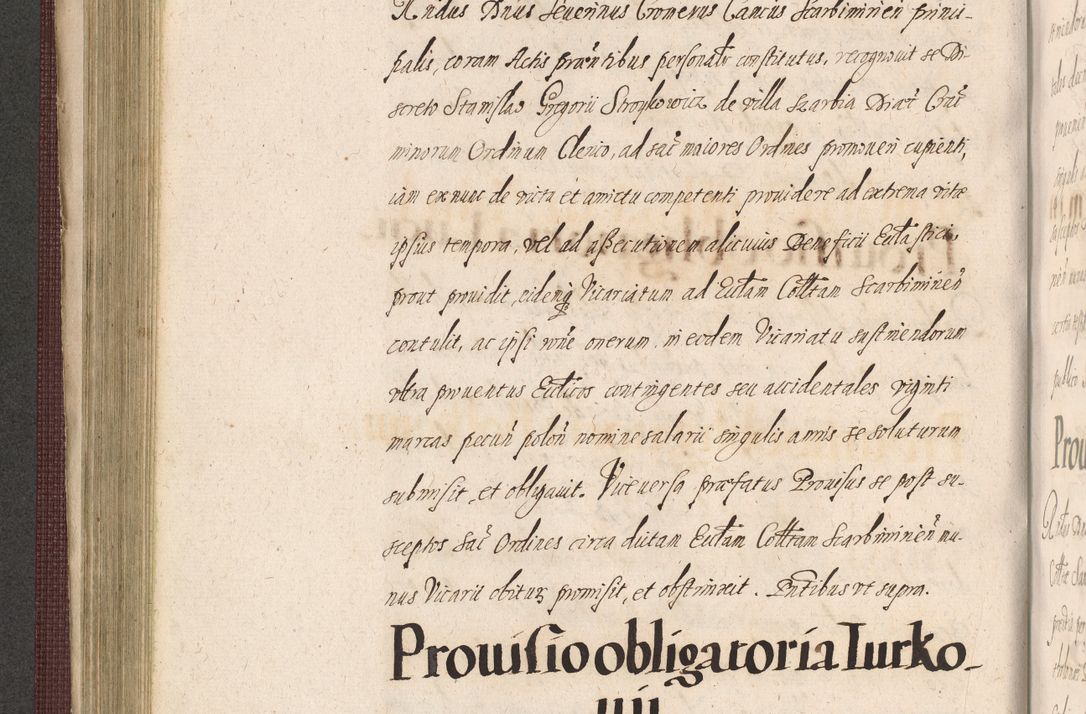 Rndus Dnus Seuerinus Cromerus Cantus Scarbimirien princi-
palis, coram Actis prńtibus personalr constitutus, recognouit se Di-
screto Stanislao Gregorii Stroykowicz de villa Skarbia Diać Crać
minorum Ordinum Clerico, ad sać maiores Ordines promoueri cupienti,
iam ex nunc de victu et amictu competenti prouidere ad extrema vitæ
ipsius tempora, vel ad assecutionem alicuius Beneficii Ecclastici
prout prouidit, eidemq Vicariatum ad Ecclam Colltam Scarbimirień
contulit, ac ipsi rone onerum in eodem Vicariatu sustinendorum
vltra prouentus Ecclicos contingentes seu accidentales viginti
marcas pecuń poloń nomine salarii singulis annis se soluturum
submisit, et obligauit. Vice versa præfatus Prouisus se post su-
sceptos Sać Ordines circa dictam Ecclam Colltam Scarbimirień mu-
nus Vicarii obitur promisit, et obstrinxit. Pntibus vt supra.
Prouisio obligatoria Iurko-
uii